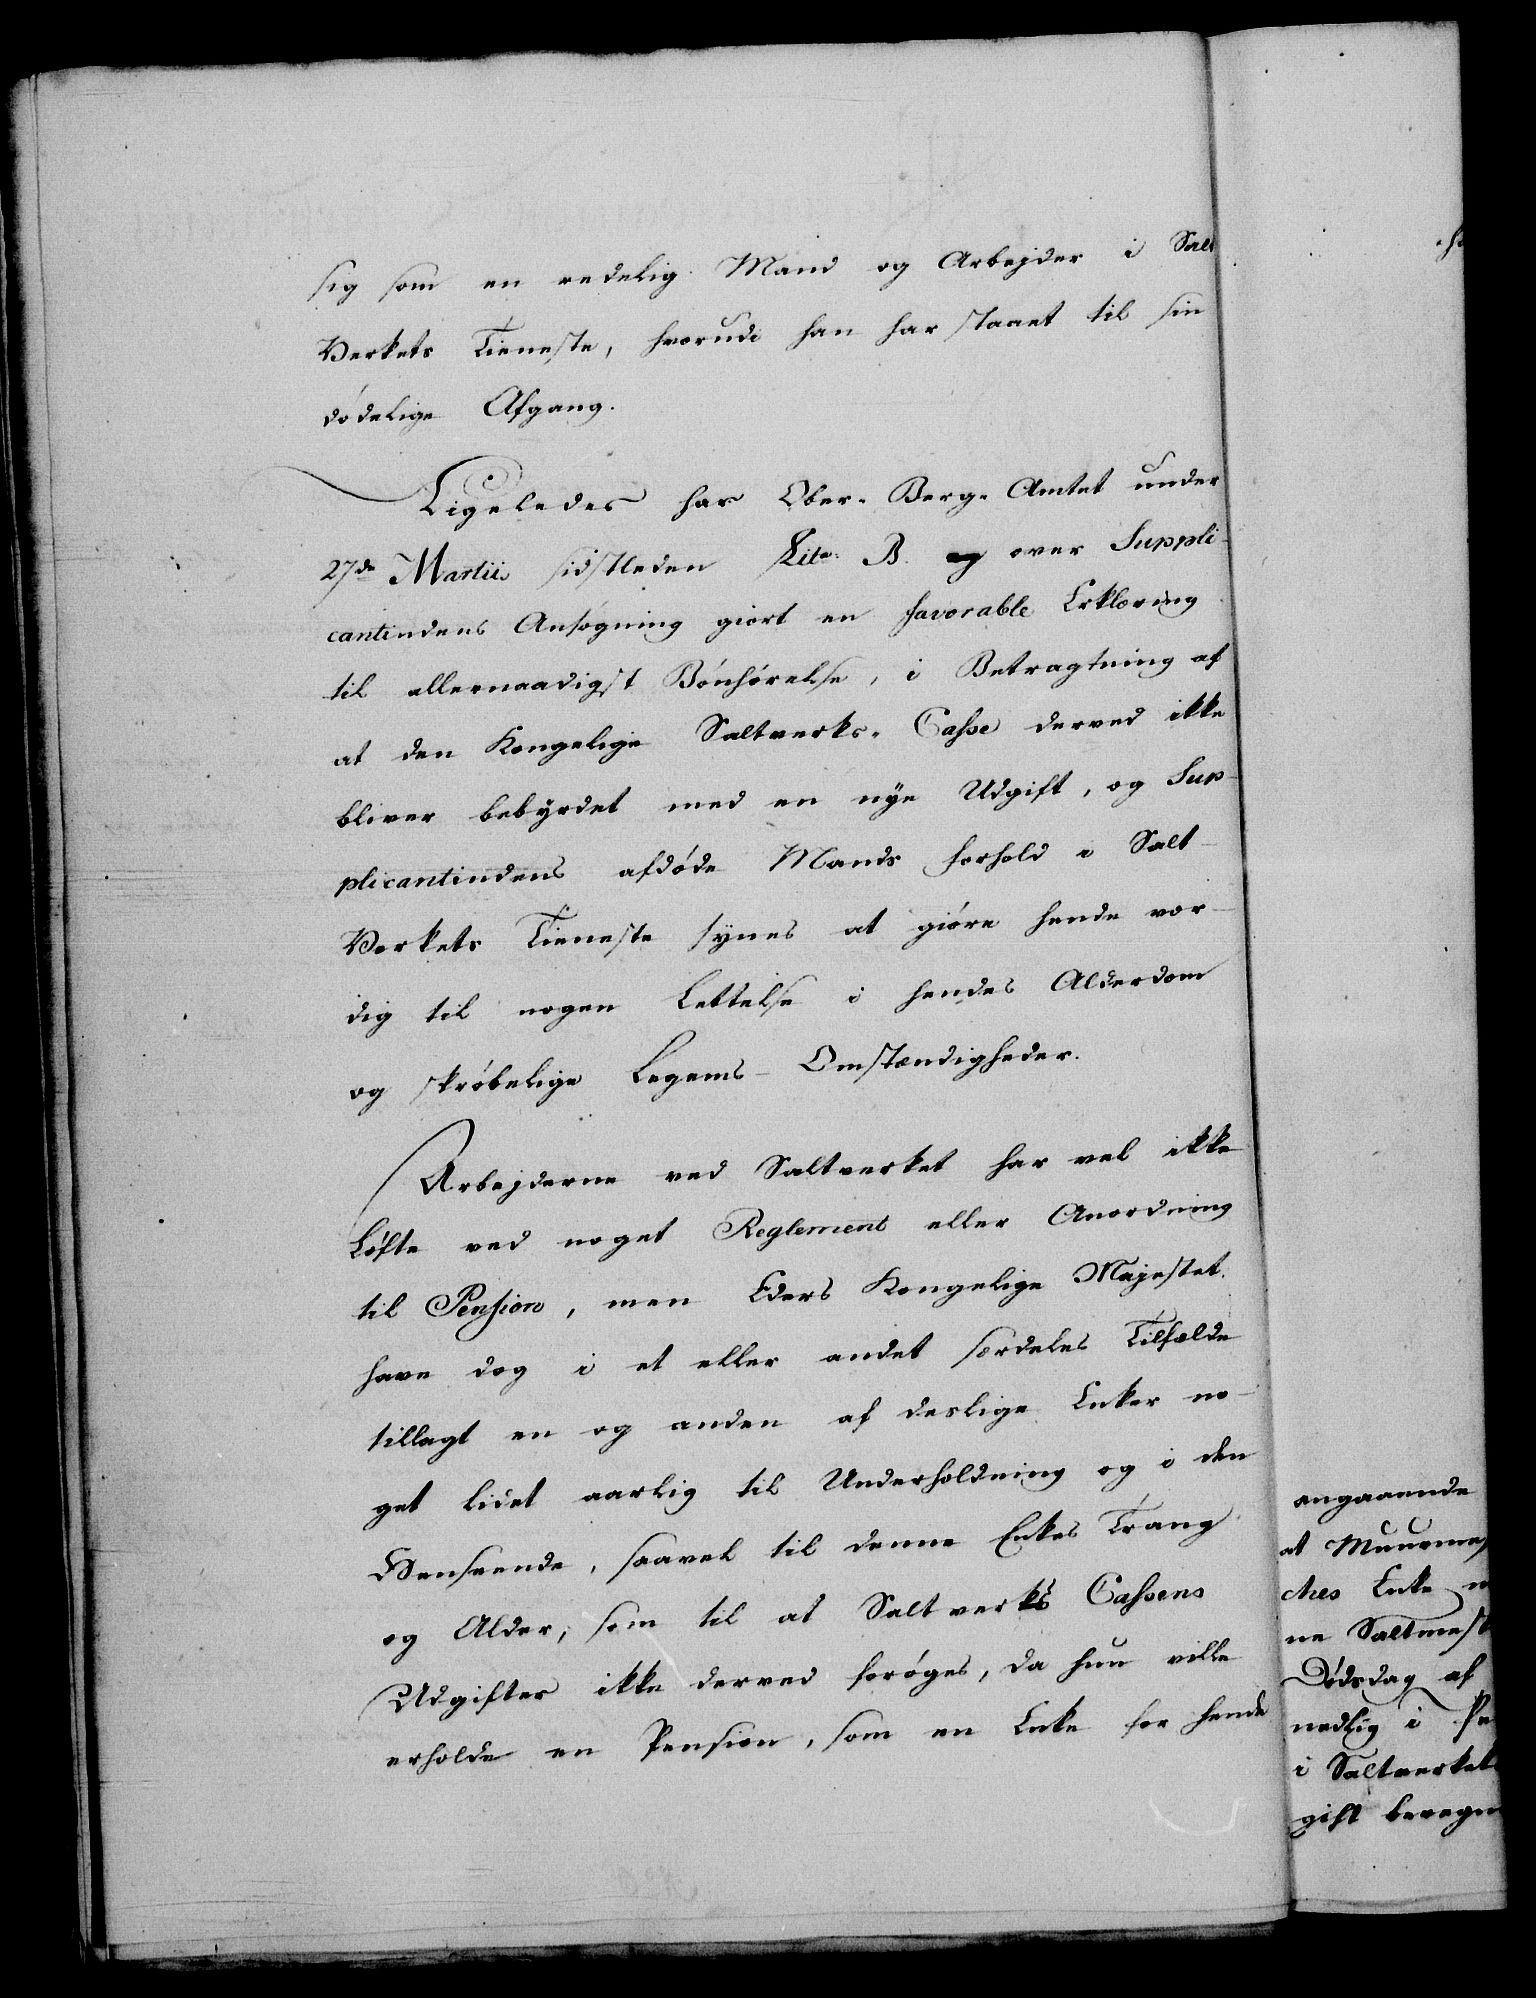 sig som en redelig Mand og Arbejder i Salt
Verkets Tieneste, hvorudi han har staaet til sin
dødelige Afgang.
Ligeledes har Ober-Berg-Amtet under
27de Martii sidstleden Lit. B. over Suppli-
cantindens Ansøgning giort en favorable Erklæring
til allernaadigst Bønhørelse, i Betragtning af
at den Kongelige Saltverks-Casse derved ikke
bliver bebyrdet med en nye Udgift, og Sup-
plicantindens afdøde Mands Forhold i Salt-
Verkets Tieneste synes at giøre hende vær-
dig til nogen Lettelse i hendes Alderdom
og skrøbelige Legems-Omstændigheder.
Arbejderne ved Saltverket har vel ikke
Løfte ved noget Reglement eller Anordning
til Pension, men Eders Kongelige Majestet
have dog i et eller andet særdeles Tilfælde
tillagt en og anden af deslige Enker no-
get lidet aarlig til Underholdning og i den
Henseende, saavel til denne Enkes Trang
og Alder, som til at Saltverks Cassens
Udgifter ikke derved forøges, da hun ville
erholde en Pension, som en Enke for hende
angaaende
at Muurmes
ches Enke
ne Saltmest
Dødsdag af
nedlig i Pe
i Saltverket
gift bevægn